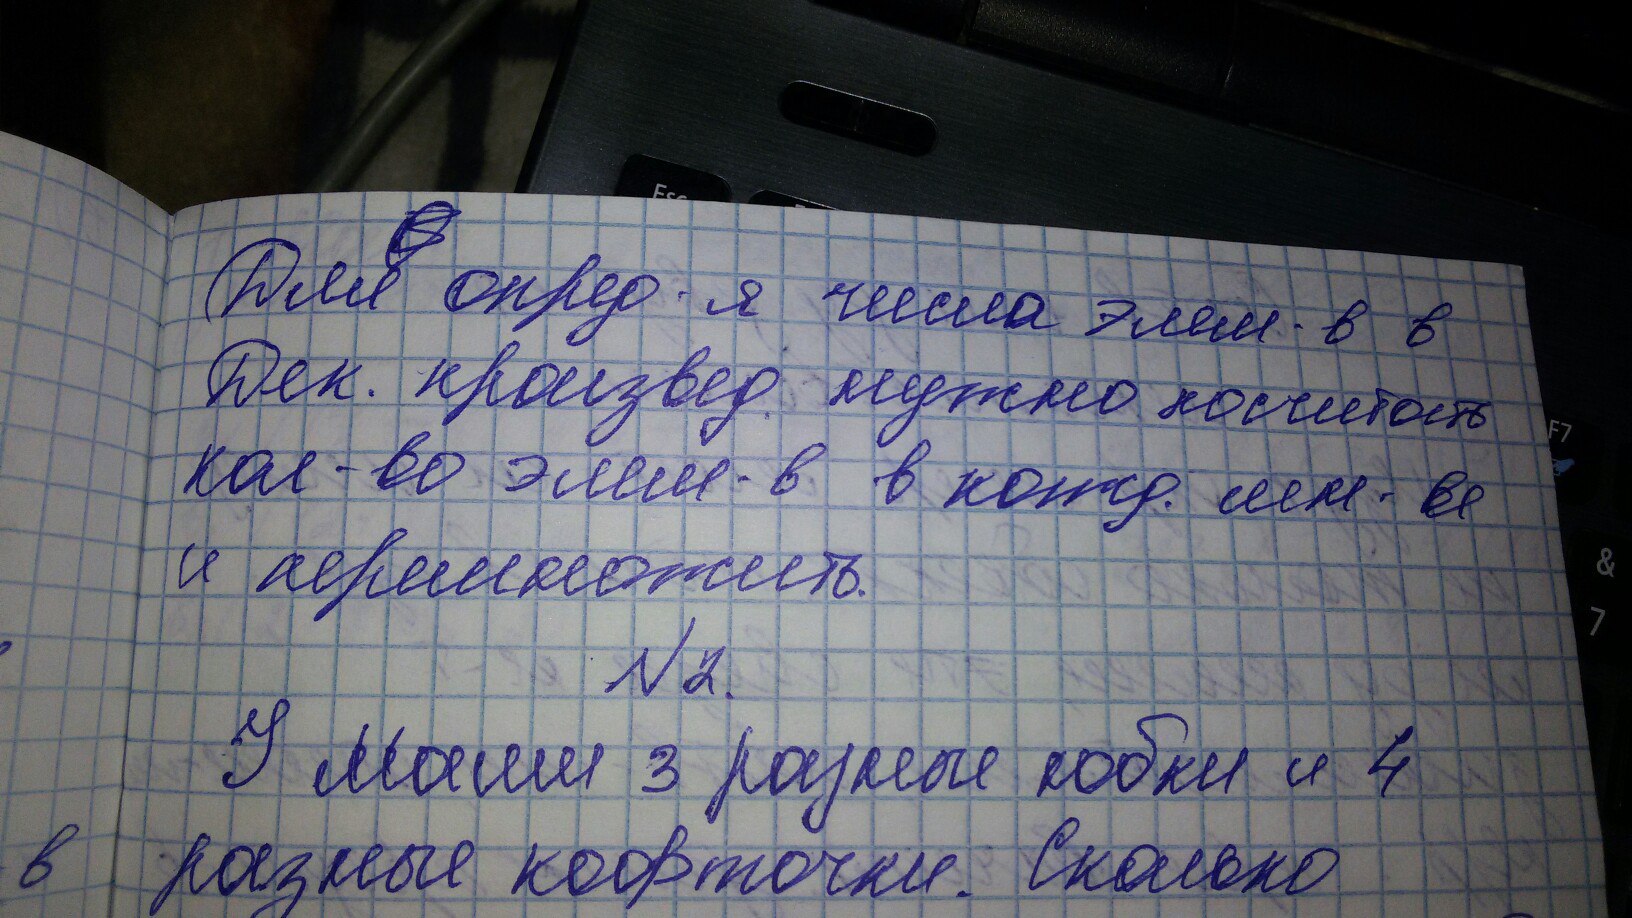 Для опред-я числа элем-в в
Дек. произвед. нужно посчитать
кол-во элем-в в кажд. мн-ве
и перемножить.
N2.
У Маши 3 разные юбки и 4
разные кофточки. Сколько
в
Esc
F7
&
7